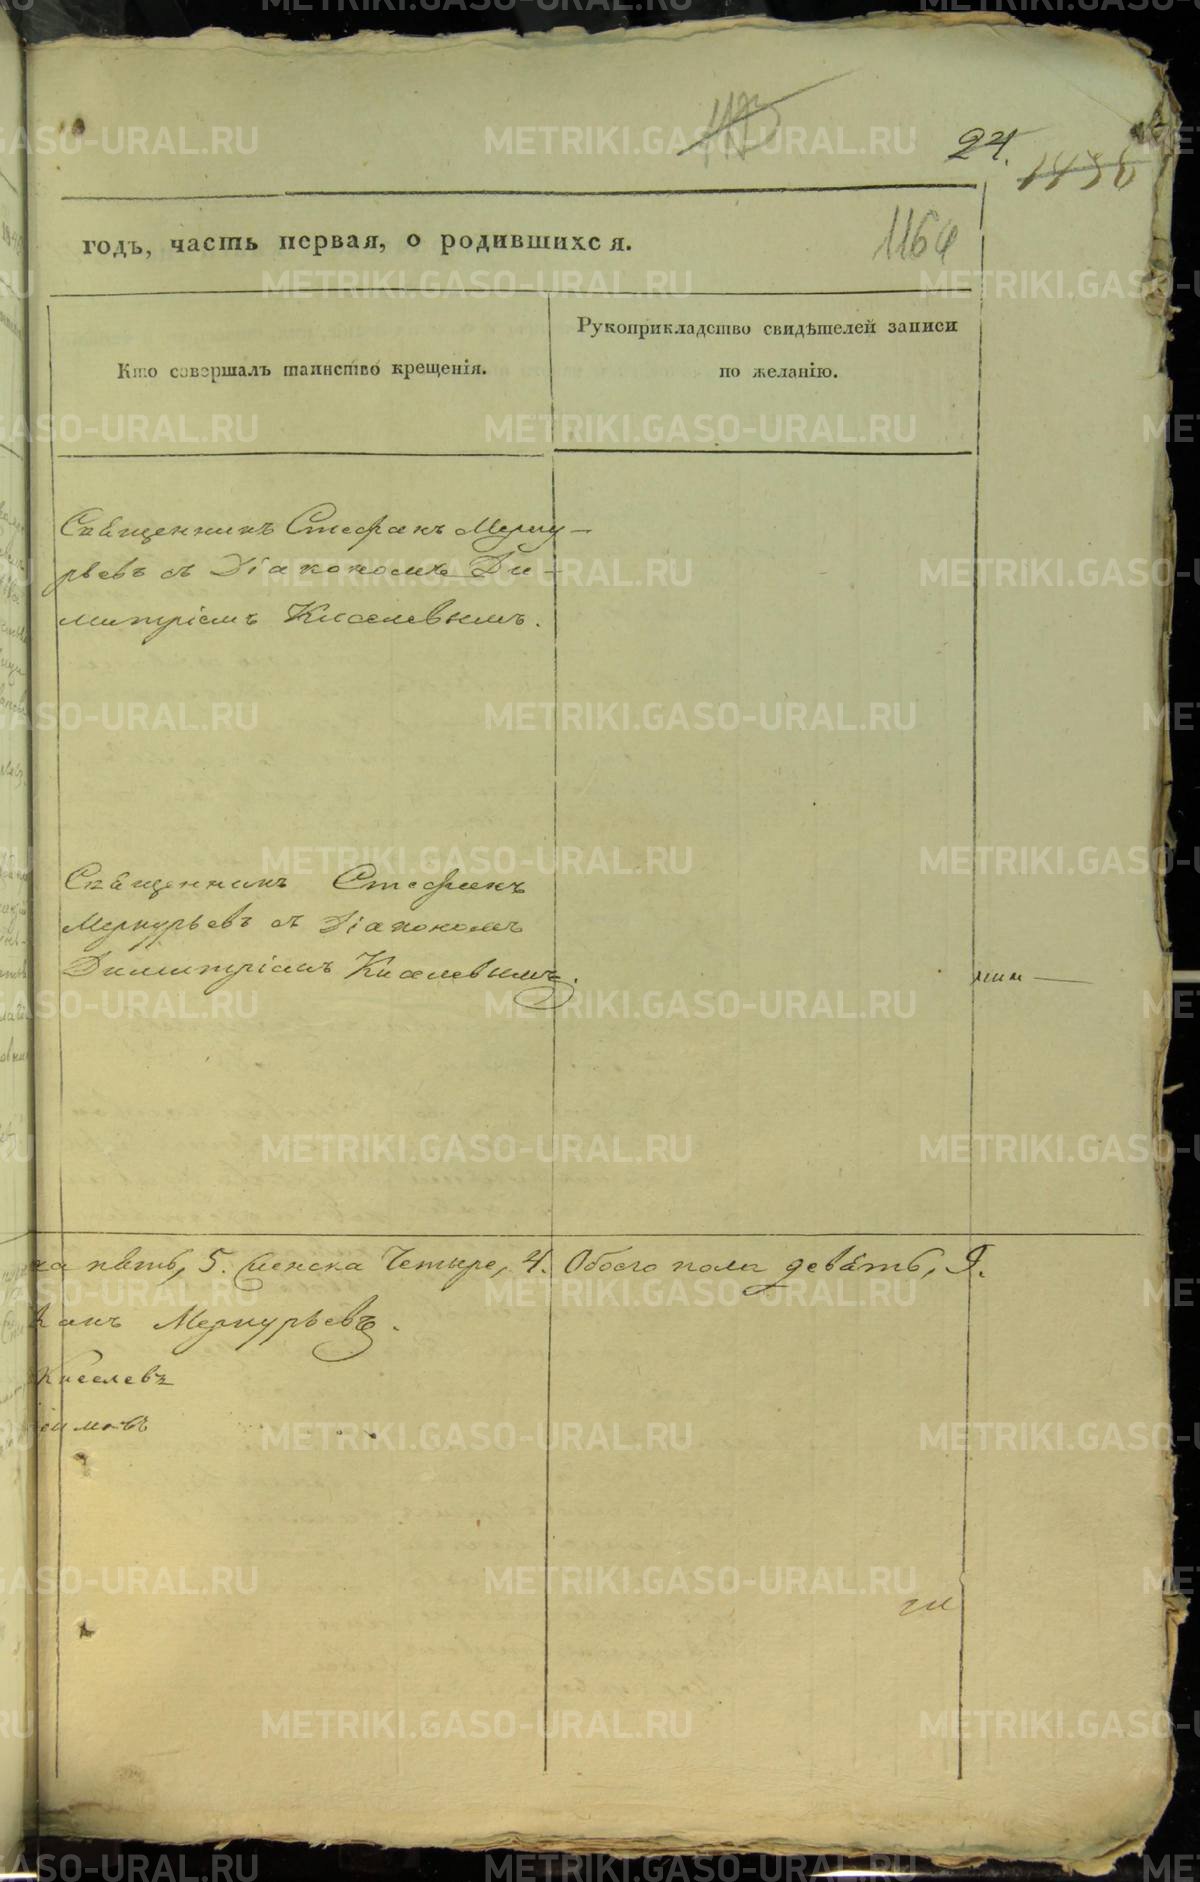 24.
1164
годъ, часть первая, о родившихся.
Кто совершалъ таинство крещенія.
Рукоприкладство свидѣтелей записи
по желанію.
Священникъ Стефанъ Мерку-
рьевъ съ Діакономъ Ди-
митріемъ Киселевымъ.
Священникъ Стефанъ
Меркурьевъ съ Діакономъ
Димитріемъ Киселевымъ.
на пять, 5. Женска Четыре, 4. Обоего пола девять, 9.
Меркурьевъ.
Киселевъ
METRIKI.GASO-URAL.RU